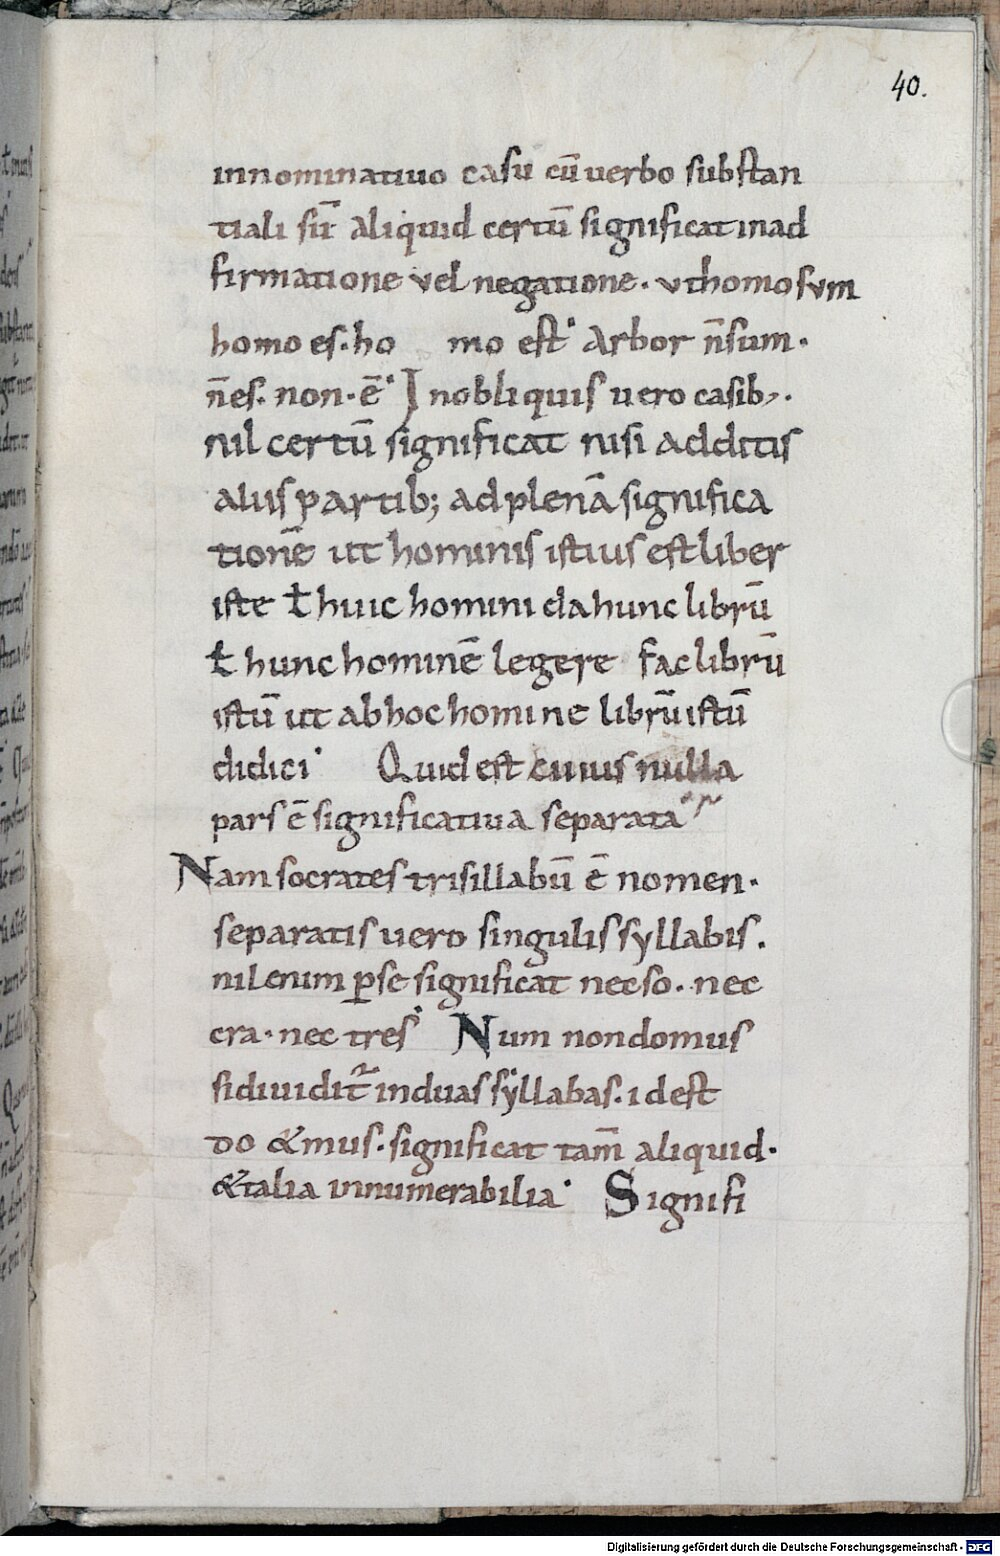 40.
innominatiuo casu cū uerbo substan
tiali sū aliquid certū significat inad
firmatione vel negatione. vthomo sum
homo es. ho mo est· Arbor n̄sum.
n̄es. non. ē· Inobliquis uero casib;.
nil certū significat nisi additis
aliis partib; adplenā significa
tionē ut hominis istius est liber
iste ł huic homini dahunc librū
ł hunc hominē legere fac librū
istū ut abhoc homine librū istū
didici· Quid est cuius nulla
pars ē significatiua separata
Nam socrates trisillabū ē nomen.
separatis uero singulis syllabis.
nil enim ꝑse significat nec so. nec
cra. nec tres· Num non domus
sidiuidit̄ induas syllabas. idest
do &mus. significat tam̄ aliquid.
&talia innumerabilia· Signifi
Digitalisierung gefördert durch die Deutsche Forschungsgemeinschaft - DFG